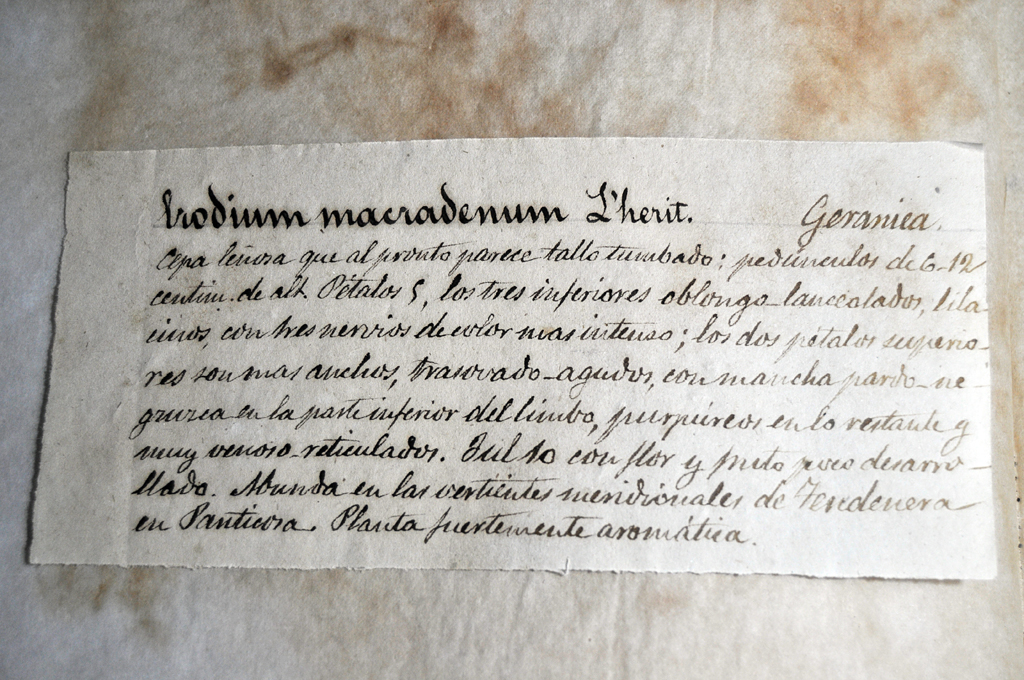 Erodium macradenum L'herit. Geraniea.
Cepa leñosa que al pronto parece tallo tumbado: pedúnculos de 6-12
centím. de alt. Pétalos 5, los tres inferiores oblongo-lanceolados, lila-
cinos, con tres nervios de color mas intenso; los dos pétalos superio-
res son mas anchos, trasovado-agudos, con mancha pardo-ne-
gruzca en la parte inferior del limbo, purpúreos en lo restante y
muy venoso-reticulados. Jul 10 con flor y fruto poco desarro-
llado. Abunda en las vertientes meridionales de Tendenera
en Panticosa. Planta fuertemente aromática.